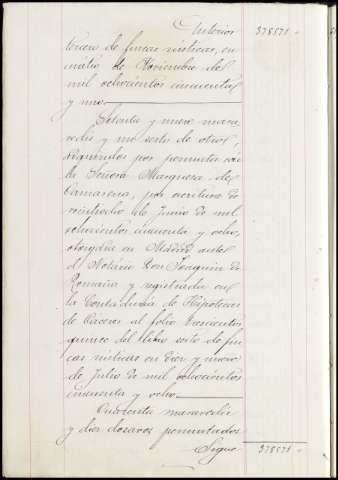 Anterior 378571
tercero de fincas rústicas, en
cuatro de Noviembre de
mil ochocientos cincuenta
y uno
Setenta y nueve mara
vedis y un sesto de otro,
adquiridos por permuta con
la Señora Marquesa de
Camarena, por escritura de
veintiocho de Junio de mil
ochocientos cincuenta y ocho,
otorgada en Madrid ante
el Notario Don Joaquin de
Romaña y registrada en
la Contaduria de Hipotecas
de Cáceres al folio trescientos
quince del libro sesto de fin
cas rústicas en diez y nueve
de Julio de mil ochocientos
cincuenta y ocho
Cuarenta maravedis
y diez dozavos permutados
Sigue 378571